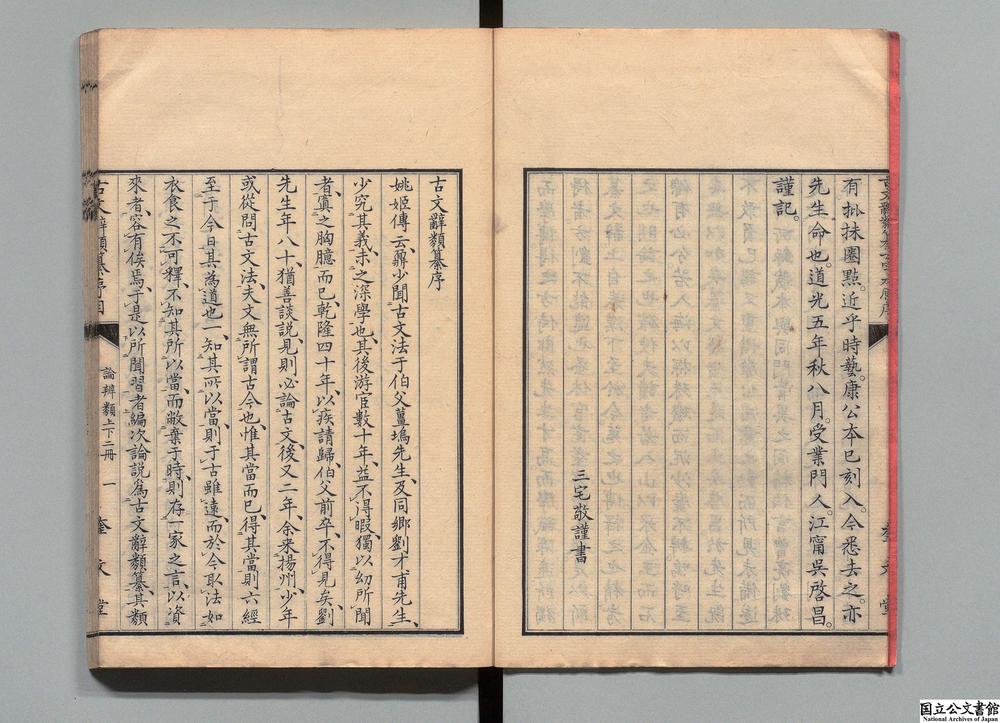 有批抹圈點。近乎時藝。康公本已刻入。今悉去之。亦
先生命也。道光五年秋八月。受業門人。江甯吳啓昌。
謹記。
三宅敬謹書
奎文堂
古文辭類纂序
姚姬傳云、鼐少聞古文法于伯父薑塢先生、及同鄉劉才甫先生、
少究其義、未之深學也、其後游宦數十年、益不得暇、獨以幼所聞
者、寘之胸臆而已、乾隆四十年、以疾請歸、伯父前卒、不得見矣、劉
先生年八十、猶善談說、見則必論古文、後又二年、余來揚州、少年
或從問古文法、夫文無所謂古今也、惟其當而已、得其當、則六經
至于今日、其為道也一、知其所以當、則于古雖遠、而於今取法、如
衣食之不可釋、不知其所以當、而敝棄于時、則存一家之言、以資
來者、容有俟焉、于是以所聞習者、編次論說為古文辭類纂、其類
古文辭類纂序目
論辨類上下二冊
一
奎文堂
国立公文書館
National Archives of Japan